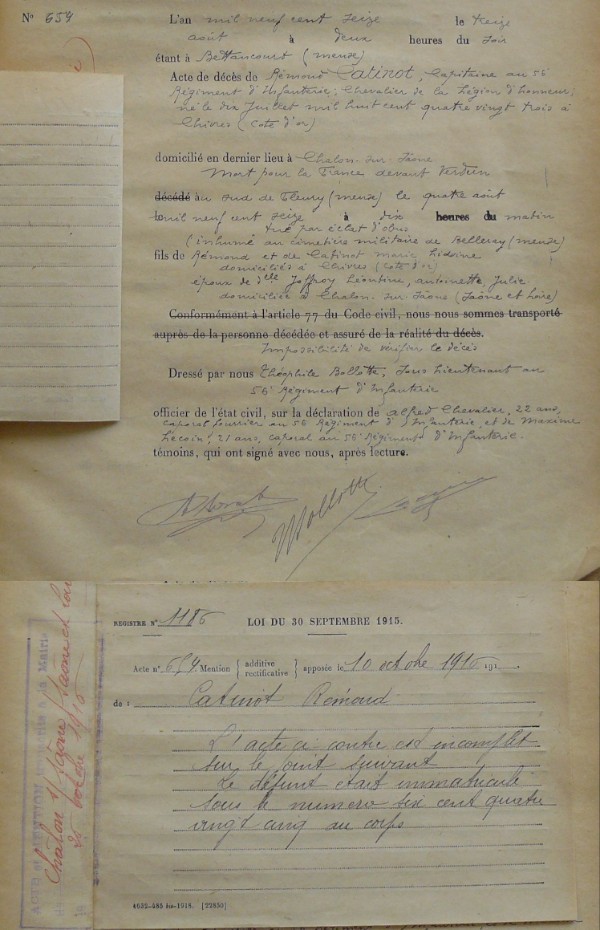 N° 654
L'an mil neuf cent seize le treize
août à deux heures du soir
étant à Bettancourt (meuse)
Acte de décès de Rémond Catinot, Capitaine au 56e
Régiment d'Infanterie; Chevalier de la Légion d'honneur;
né le dix Juillet mil huit cent quatre vingt trois à
Chivres (Cote d'or)
domicilié en dernier lieu à Chalon-sur-Saône
Mort pour la France devant Verdun
décédé au sud de Fleury (meuse) le quatre août
mil neuf cent seize à dix heures du matin
tué par éclat d'obus
(inhumé au cimetière militaire de Belleray (meuse)
fils de Rémond et de Catinot marie Lidoine
domiciliés à Chivres (Cote d'or)
époux de dlle Joffroy Léontine, antoinette, Julie
domiciliée à Chalon-sur-Saône (Saône et Loire)
Conformément à l'article 77 du Code civil, nous nous sommes transporté
auprès de la personne décédée et assuré de la réalité du décès.
Impossibilité de vérifier le décès
Dressé par nous Théophile Bollotte, Sous Lieutenant au
56e Régiment d'Infanterie
officier de l'état civil, sur la déclaration de alfred Chevalier, 22 ans,
caporal fourrier au 56e Régiment d'Infanterie, et de Maxime
Lecoin, 21 ans, caporal au 56e Régiment d'Infanterie.
témoins, qui ont signé avec nous, après lecture.
REGISTRE N° 1186
LOI DU 30 SEPTEMBRE 1915.
Acte n° 654 Mention { additive rectificative } apposée le 10 octobre 1916 191
de : Catinot Rémond
L'acte ci contre est incomplet
sur le point suivant
Le défunt était immatriculé
sous le numero six cent quatre
vingt cinq au corps
4032-485 bis-1918. [22850]
ACTE et MENTION à la Mairie
Chalon s/ Saône Saône et Loire
25 octobre 1916